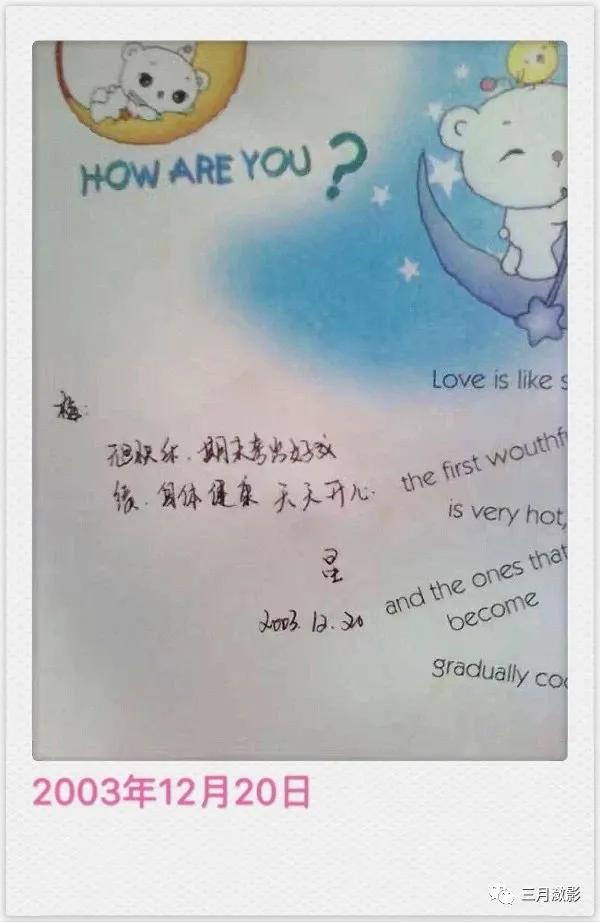 HOW ARE YOU?
Love is like s
the first wouthf
is very hot,
and the ones that
become
gradually coo
元旦快乐.期末考出好成
绩.身体健康 天天开心.
星
2003.12.20
2003年12月20日
三月潋影